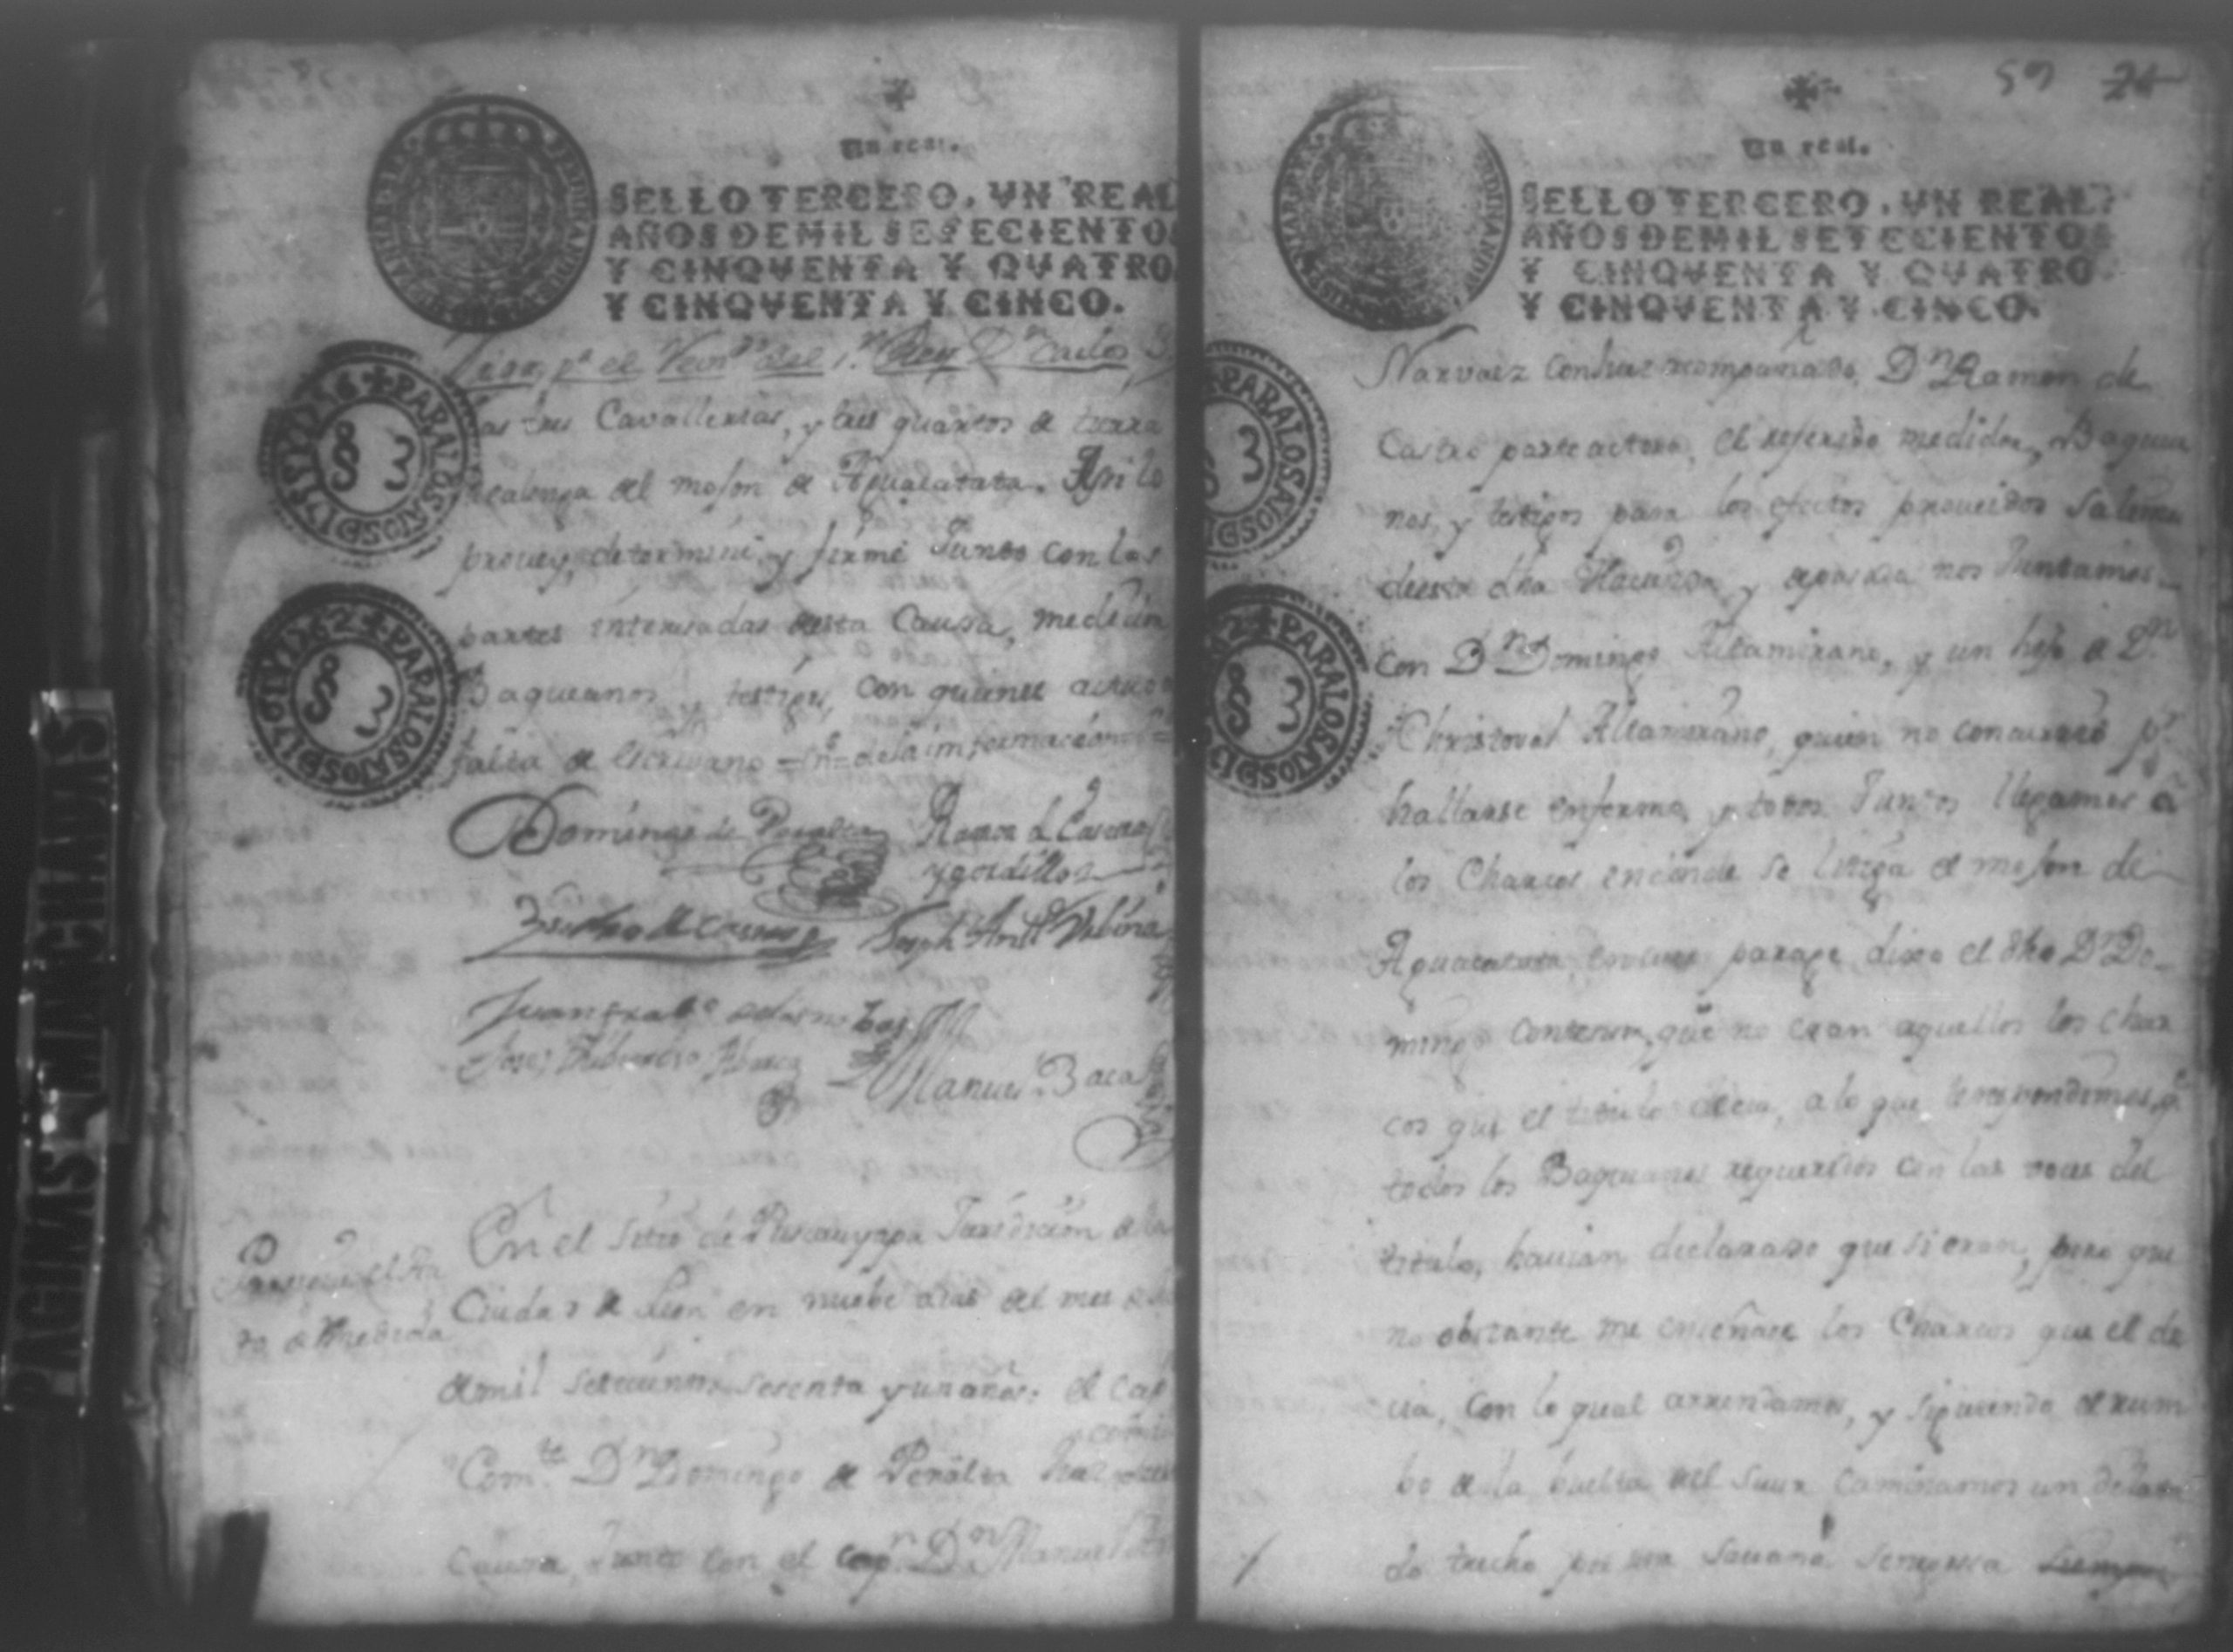 Un real.
SELLO TERCERO, UN REAL
AÑOS DE MIL SETECIENTOS
Y CINQVENTA Y QVATRO
Y CINQVENTA Y CINCO.
PARA LOS AÑOS D 1751 Y 1756
PARA LOS AÑOS D 1761 Y 1762
el Reyn.do del S.r Rey D.n Carlos 3
las tres Cavallerias, y tres quartos de tierra
realenga del mojon de Aguacatata. Assi lo
provey, determiné, y firmé Junto con las
partes interesadas desta Causa, medidor
Baqueanos, testigos, con quienes actuo
falta de Escrivano = de la informacion
Domingo de Peralta Ramon de Castro
y gordillo
Manuel Baca
En el Sitio de Jurisdiccion de la
de Medida Ciudad de Leon en nuebe dias del mes
de mil setecientos sesenta y un años. el Cap
Com.te D.n Domingo de Peralta Juez
Causa, Junto con el cap.n D.n Manuel
59 24
Un real.
SELLO TERCERO, UN REAL
AÑOS DE MIL SETECIENTOS
Y CINQVENTA Y QVATRO
Y CINQVENTA Y CINCO.
PARA LOS AÑOS
PARA LOS AÑOS
Narvaez conJuez acompañado, D.n Ramon de
Castro parte actora, el referido medidor, Baquea
nos, y testigos para los efectos proveidos Salimos
desta dha Hacienda y nos Juntamos
con D.n Domingo Altamirano, y un hijo de D.n
Christoval Altamirano, quien no concurrió p.r
hallarse enfermo, y todos Juntos llegamos â
los Charcos encinde se el mojon de
Aguacatata, en cuyo parage dixo el dho D.n Do-
mingo que no eran aquellos los char
cos que el titulo decia, a lo que le respondimos, q.e
todos los Baqueanos requeridos con las voces del
titulo, havian declarado que si eran, pero que
no obstante me enseñare los Charcos que el de
cia, con lo qual arrendamos, y siguiendo el rum
bo de la buelta del Suur Caminamos un dilata
do trecho por una Savana